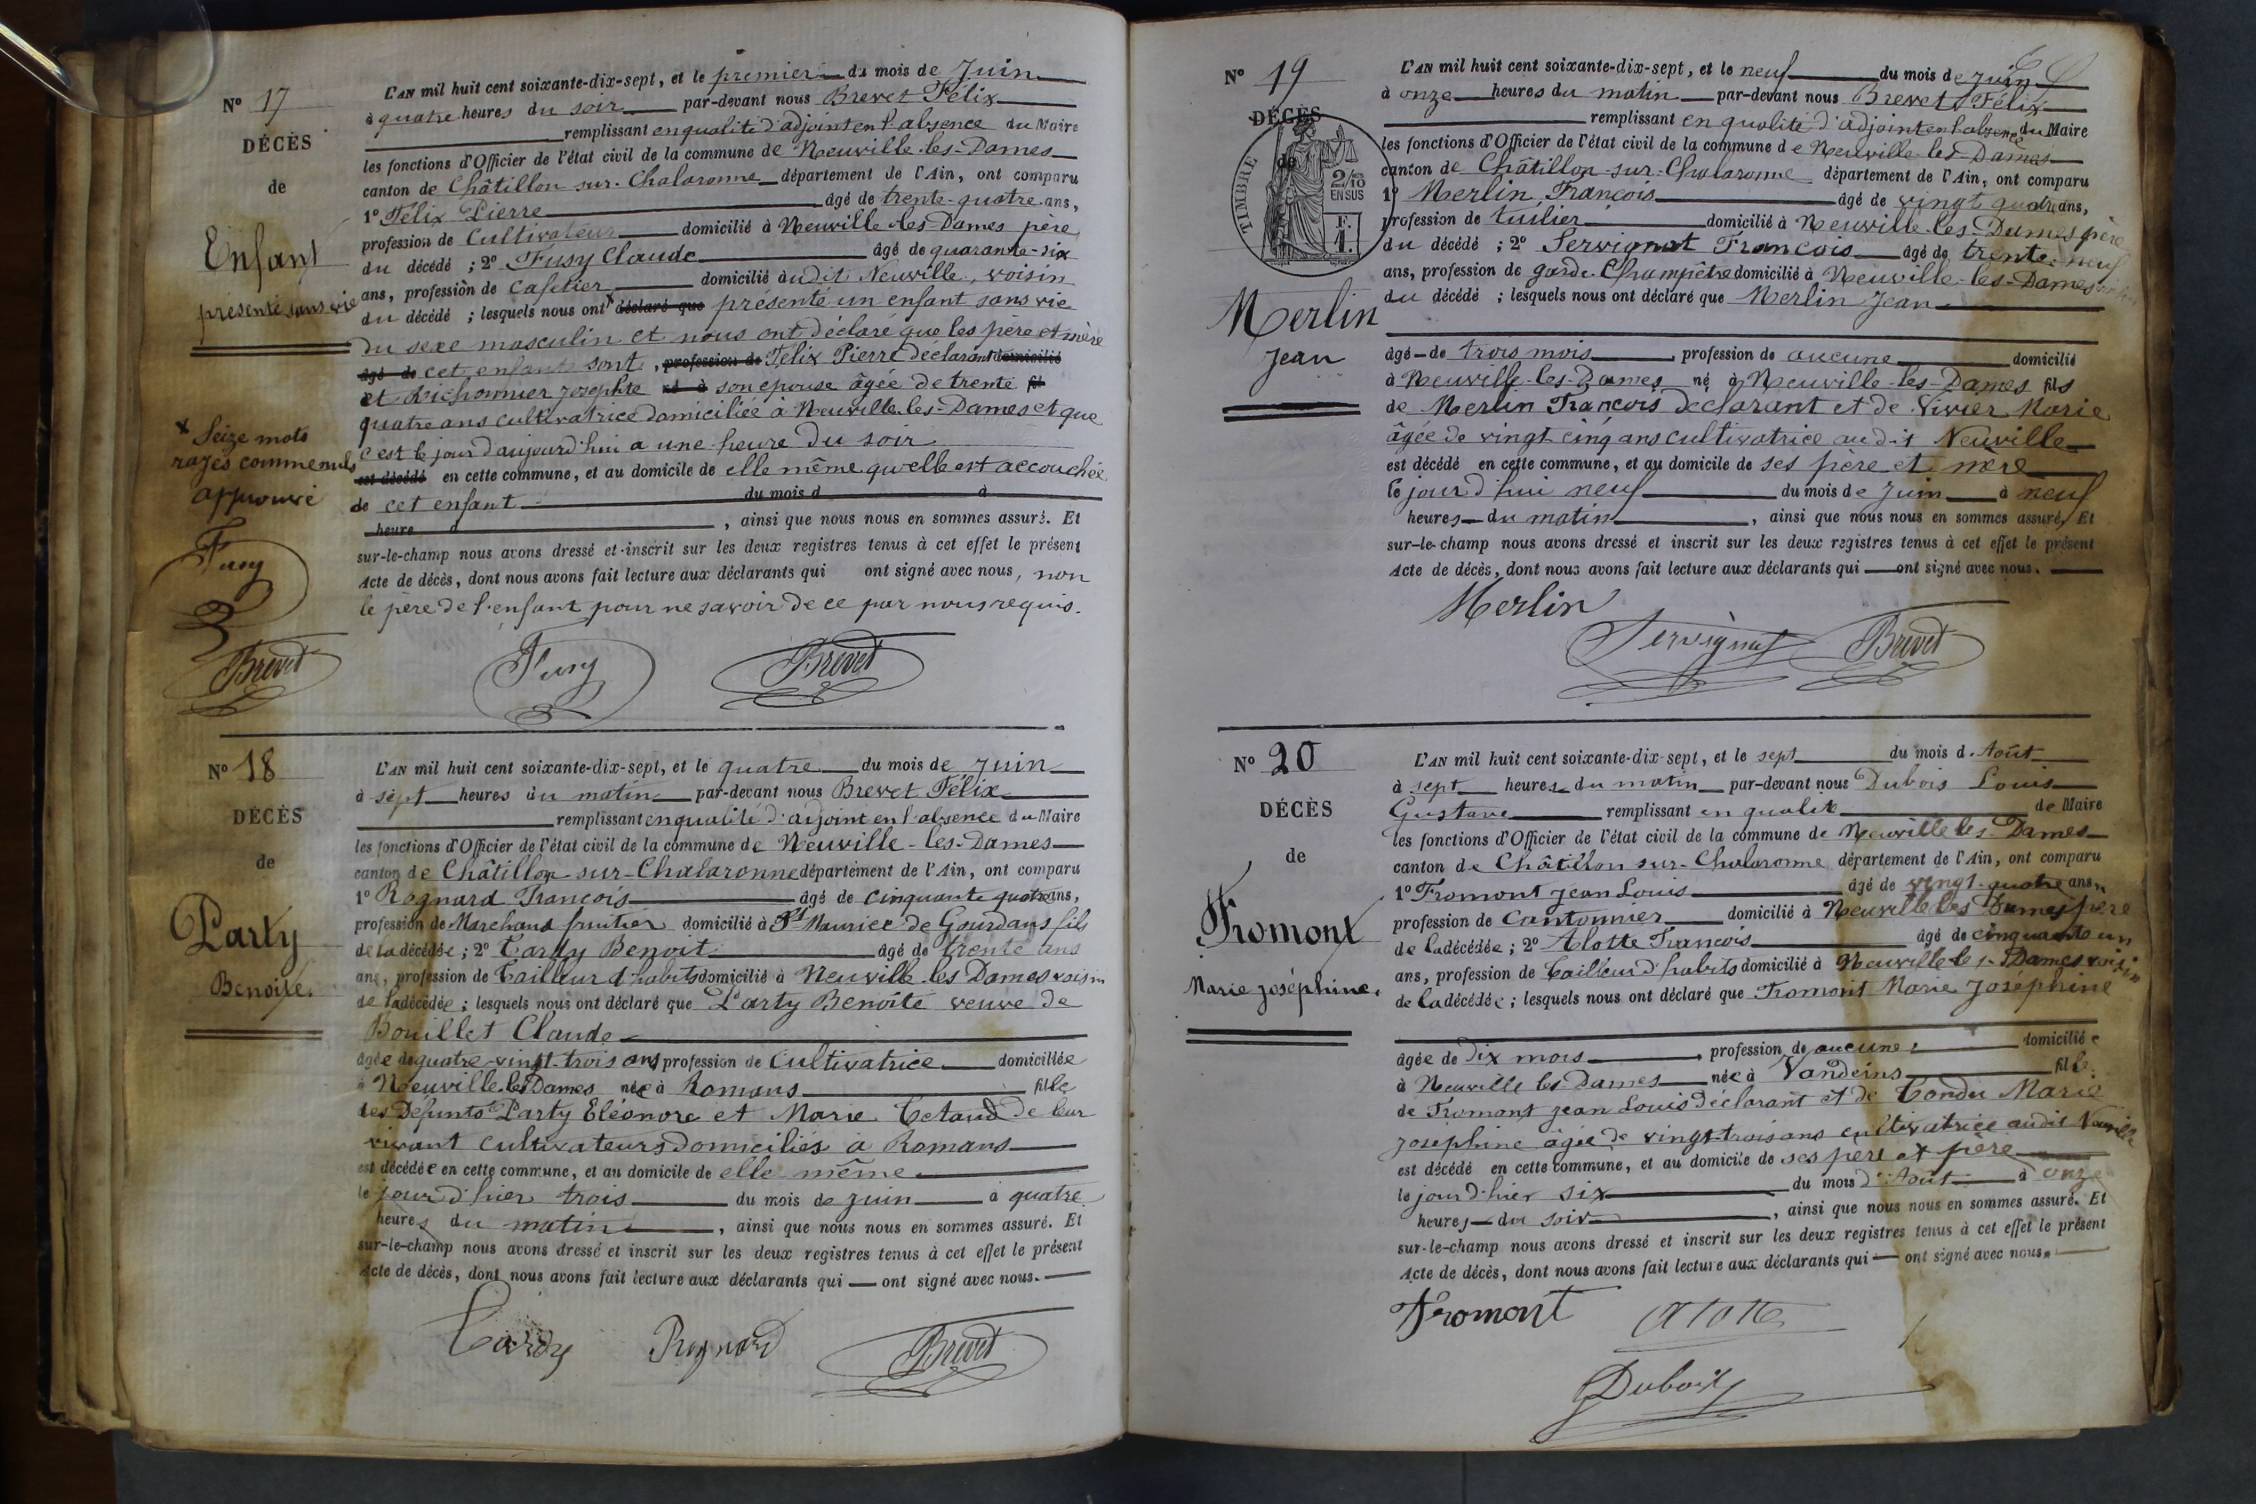 N° 17
DÉCÈS
de
Enfant
présenté sans vie
x Seize mots
rayés comme nuls
approuvé
Fusy
Brevet
L'AN mil huit cent soixante-dix-sept, et le premier du mois de Juin
à quatre heures du soir par-devant nous Brevet Félix
remplissant en qualité d'adjoint en l'absence du Maire
les fonctions d'Officier de l'état civil de la commune de Neuville-les-Dames
canton de Châtillon-sur-Chalaronne département de l'Ain, ont comparu
1° Félix Pierre âgé de trente-quatre ans,
profession de Cultivateur domicilié à Neuville-les-Dames père
du décédé ; 2° Fusy Claude âgé de quarante-six
ans, profession de Cafetier domicilié à udit Neuville, voisin
du décédé ; lesquels nous ont x déclaré que présenté un enfant sans vie
du sexe masculin et nous ont déclaré que les père et mère
âgé de cet enfant sont, profession de Félix Pierre déclarant domicilié
et Richonnier Josephte né à son épouse âgée de trente fil
quatre ans cultivatrice domiciliée à Neuville-les-Dames et que
c'est le jour d'aujourd'hui a une heure du soir
est décédé en cette commune, et au domicile de elle même qu'elle est accouchée
de cet enfant du mois d à
heure d , ainsi que nous nous en sommes assuré. Et
sur-le-champ nous avons dressé et inscrit sur les deux registres tenus à cet effet le présent
Acte de décès, dont nous avons fait lecture aux déclarants qui ont signé avec nous, non
le père de l'enfant pour ne savoir de ce par nous requis.
Fusy Brevet
N° 18
DÉCÈS
de
Party
Benoîte.
L'AN mil huit cent soixante-dix-sept, et le quatre du mois de Juin
à sept heures du matin par-devant nous Brevet Félix
remplissant en qualité d'adjoint en l'absence du Maire
les fonctions d'Officier de l'état civil de la commune de Neuville-les-Dames
canton de Châtillon-sur-Chalaronne département de l'Ain, ont comparu
1° Regnard François âgé de cinquante quatre ans,
profession de Marchand fruitier domicilié à St Maurice de Gourdans fils
de la décédée ; 2° Tardy Benoit âgé de trente ans
ans, profession de Tailleur d'habits domicilié à Neuville-les-Dames voisin
de la décédée ; lesquels nous ont déclaré que Party Benoîte veuve de
Bouillet Claude
âgée de quatre-vingt-trois ans profession de Cultivatrice domiciliée
à Neuville-les-Dames née à Romans fille
des Défunts Party Eléonore et Marie Tetaud de leur
vivant cultivateurs domiciliés à Romans
est décédée en cette commune, et au domicile de elle même
le jour d'hier trois du mois de Juin à quatre
heures du matin , ainsi que nous nous en sommes assuré. Et
sur-le-champ nous avons dressé et inscrit sur les deux registres tenus à cet effet le présent
Acte de décès, dont nous avons fait lecture aux déclarants qui ont signé avec nous.
Tardy Regnard Brevet
N° 19
DÉCÈS
de
TIMBRE
2/10
EN SUS
F.
1.
Merlin
Jean
L'AN mil huit cent soixante-dix-sept, et le neuf du mois de Juin
à onze heures du matin par-devant nous Brevet Félix
remplissant en qualité d'adjoint en l'absence du Maire
les fonctions d'Officier de l'état civil de la commune de Neuville-les-Dames
canton de Châtillon-sur-Chalaronne département de l'Ain, ont comparu
1° Merlin François âgé de vingt quatre ans,
profession de tuilier domicilié à Neuville-les-Dames père
du décédé ; 2° Servignat François âgé de trente-neuf
ans, profession de garde Champêtre domicilié à Neuville-les-Dames
du décédé ; lesquels nous ont déclaré que Merlin Jean
âgé de trois mois , profession de aucune domicilié
à Neuville-les-Dames né à Neuville-les-Dames fils
de Merlin François déclarant et de Vivier Marie
âgée de vingt cinq ans cultivatrice audit Neuville
est décédé en cette commune, et au domicile de ses père et mère
le jour d'hui neuf du mois de Juin à neuf
heures du matin , ainsi que nous nous en sommes assuré. Et
sur-le-champ nous avons dressé et inscrit sur les deux registres tenus à cet effet le présent
Acte de décès, dont nous avons fait lecture aux déclarants qui ont signé avec nous.
Merlin Servignat Brevet
N° 20
DÉCÈS
de
Fromont
Marie Joséphine.
L'AN mil huit cent soixante-dix-sept, et le sept du mois d'Août
à sept heures du matin par-devant nous Dubois Louis
Gustave remplissant en qualité de Maire
les fonctions d'Officier de l'état civil de la commune de Neuville les-Dames
canton de Châtillon-sur-Chalaronne département de l'Ain, ont comparu
1° Fromont Jean Louis âgé de vingt-quatre ans,
profession de Cantonnier domicilié à Neuville les Dames père
de la décédée ; 2° Alotte François âgé de cinquante un
ans, profession de Tailleur d'habits domicilié à Neuville-les-Dames voisin
de la décédée ; lesquels nous ont déclaré que Fromont Marie Joséphine
âgée de dix mois , profession de aucune domiciliée
à Neuville les-Dames née à Vandeins fille
de Fromont Jean Louis déclarant et de Tondu Marie
Joséphine âgée de vingt-trois ans cultivatrice audit Neuville
est décédé en cette commune, et au domicile de ses père et père
le jour d'hier six du mois d'Août à onze
heures du soir , ainsi que nous nous en sommes assuré. Et
sur-le-champ nous avons dressé et inscrit sur les deux registres tenus à cet effet le présent
Acte de décès, dont nous avons fait lecture aux déclarants qui ont signé avec nous.
Fromont Alotte
Dubois